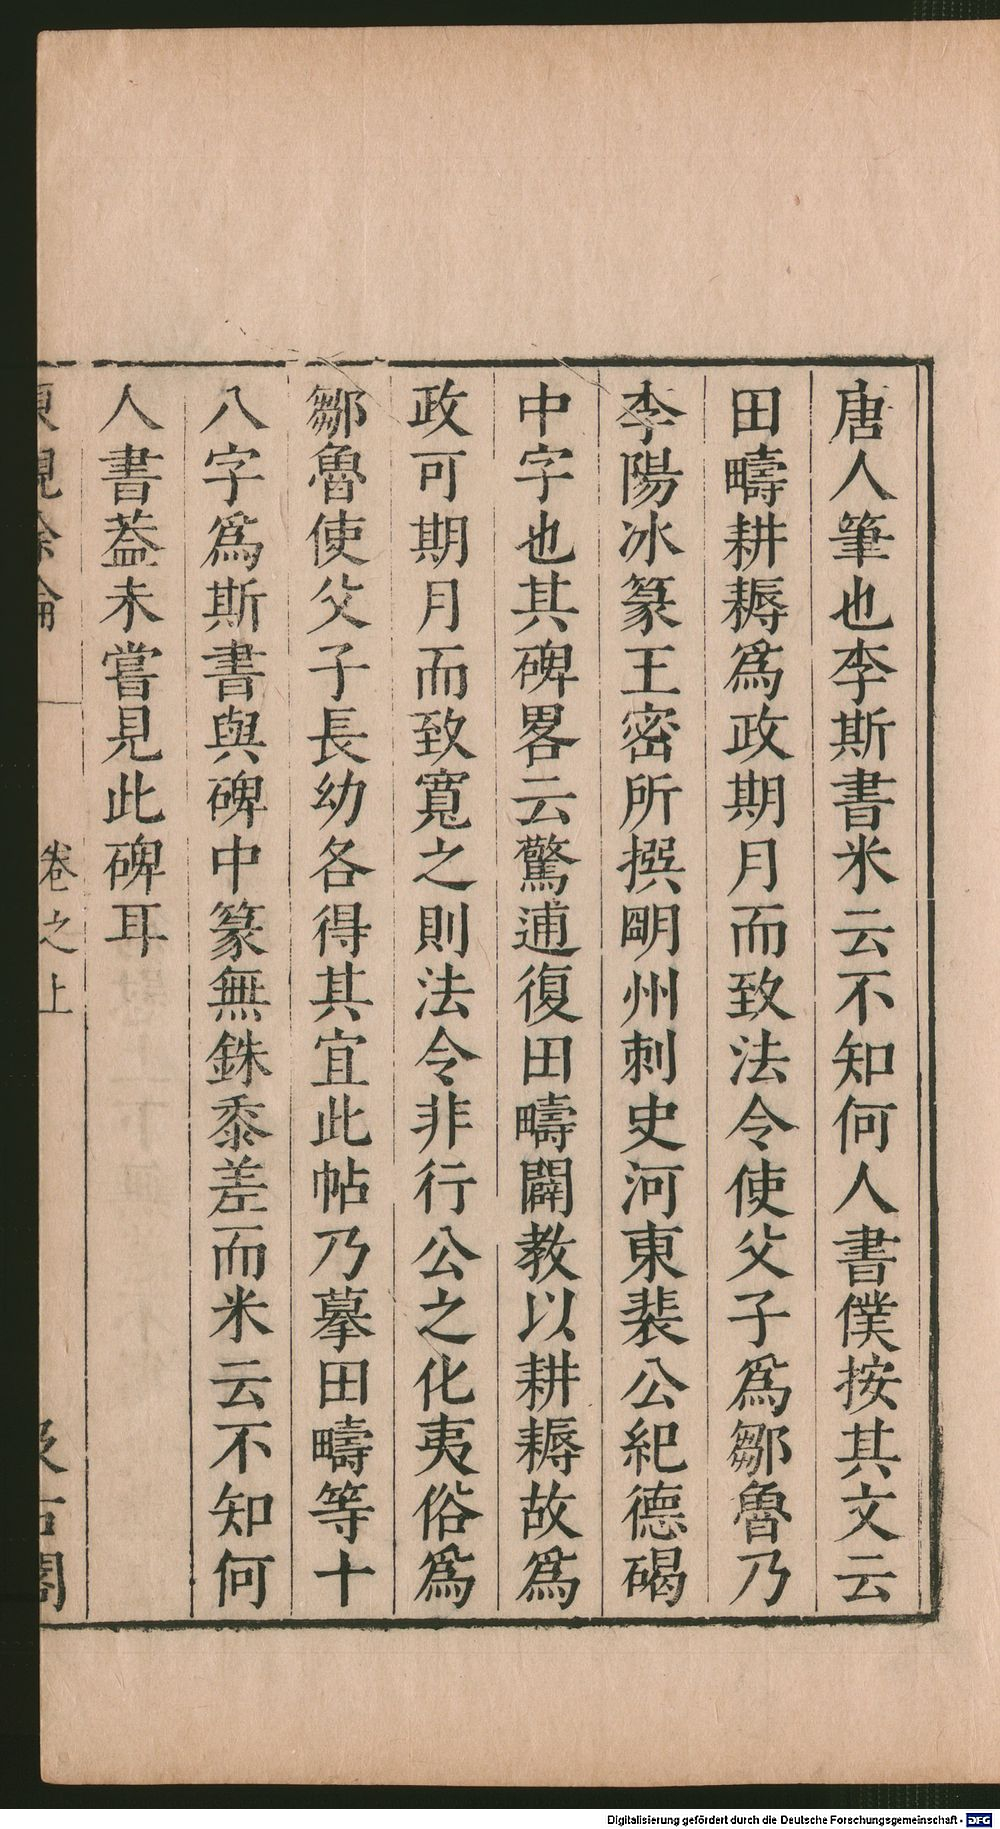 唐人筆也李斯書米云不知何人書僕按其文云
田疇耕耨爲政期月而致法令使父子爲鄒魯乃
李陽冰篆王密所撰明州刺史河東裴公紀德碣
中字也其碑畧云驚逋復田疇闢教以耕耨故爲
政可期月而致寬之則法令非行公之化夷俗爲
鄒魯使父子長幼各得其宜此帖乃摹田疇等十
八字爲斯書與碑中篆無銖黍差而米云不知何
人書葢未嘗見此碑耳
東觀餘論 卷之上 汲古閣
Digitalisierung gefördert durch die Deutsche Forschungsgemeinschaft - DFG